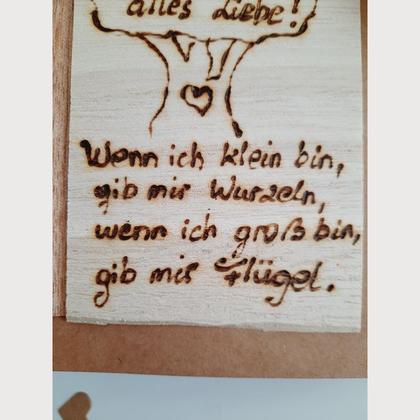 alles Liebe!
Wenn ich klein bin,
gib mir Wurzeln,
wenn ich groß bin,
gib mir Flügel.